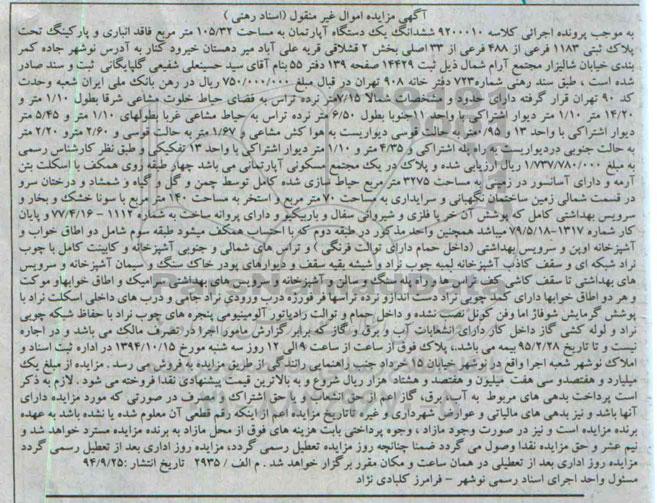 آگهی مزایده اموال غیر منقول (اسناد رهنی)
به موجب پرونده اجرائی کلاسه ۹۲۰۰۰۱۰ ششدانگ یک دستگاه آپارتمان به مساحت ۱۰۵/۳۲ متر مربع فاقد انباری و پارکینگ تحت
پلاک ثبتی ۱۱۸۳ فرعی از ۴۸۸ فرعی از ۳۳ اصلی بخش ۲ قشلاقی قریه علی آباد میر دهستان خیرود کنار به آدرس نوشهر جاده کمر
بندی خیابان شالیزار مجتمع آرام شمال ذیل ثبت ۱۴۴۲۹ صفحه ۱۳۹ دفتر ۵۵ بنام آقای سید حسینعلی شفیعی گلپایگانی ثبت و سند صادر
شده است ، طبق سند رهنی شماره۷۲۳ دفتر خانه ۹۰۸ تهران در قبال مبلغ ۷۵۰/۰۰۰/۰۰۰ ریال در رهن بانک ملی ایران شعبه وحدت
کد ۹۰ تهران قرار گرفته دارای حدود و مشخصات شمالا ۷/۱۵متر نرده تراس به فضای حیاط خلوت مشاعی شرقا بطول ۱/۱۰ متر و
۱۴/۲۰ متر ۱/۱۰ متر دیوار اشتراکی با واحد ۱۱جنوبا بطول ۶/۵۰ متر نرده تراس به حیاط مشاعی غربا بطولهای ۱/۱۰ متر و ۵/۴۵ متر
دیوار اشتراکی با واحد ۱۳ و ۰/۹۵متر به حالت قوسی دیواریست به هوا کش مشاعی و ۱/۶۷ متر به حالت قوسی و ۲/۶۰مترو ۲/۲۰ متر
به حالت جنوبی دردیواریست به راه پله اشتراکی و ۴/۳۵ متر و ۱/۱۰ متر دیوار اشتراکی با واحد ۱۳ تفکیکی و طبق نظر کارشناس رسمی
به مبلغ ۱/۷۳۷/۷۸۰/۰۰۰ ریال ارزیابی شده و پلاک در یک مجتمع مسکونی آپارتمانی می باشد چهار طبقه روی همکف با اسکلت بتن
آرمه و دارای آسانسور در زمینی به مساحت ۳۲۷۵ متر مربع حیاط سازی شده کامل توسط چمن و گل و گیاه و شمشاد و درختان سرو
در قسمت شمالی زمین ساختمان نگهبانی و سرایداری به مساحت ۷۰ متر مربع و استخر به مساحت ۱۴۰ متر مربع با سونا خشک و بخار و
سرویس بهداشتی کامل که پوشش آن خرپا فلزی و شیروانی سفال و باربیکیو و دارای پروانه ساخت به شماره ۱۱۱۲ - ۷۷/۴/۱۶ و پایان
کار شماره ۱۳۱۷-۷۹/۵/۱۸ میباشد همچنین واحد مذکور در طبقه دوم که با احتساب همکف میشود طبقه سوم شامل دو اطاق خواب و
آشپزخانه اوپن و سرویس بهداشتی (داخل حمام دارای توالت فرنگی) و تراس های شمالی و جنوبی آشپزخانه و کابینت کامل با چوب
نراد شبکه ای و سقف کاذب آشپزخانه لمبه چوب نراد و شیشه بقیه سقف و دیوارهای پودر خاک سنگ و سیمان آشپزخانه و سرویس
های بهداشتی تا سقف کاشی کف پارس مادر آرایشگاه و سالن و آشپزخانه و سرویس های بهداشتی سرامیک و اطاق خوابهاو موکت
و هر دو اطاق خوابها دارای کمد چوبی نراد دست اندازو نرده تراسها فر فورژه درب ورودی نراد جامی و درب های داخلی اسکلت نراد با
پوشش گرمایش شوفاژ اما وفن کوئل نصب نشده و داخل حمام و توالت رادیاتور آلومینیومی پنجره های چوب نراد با حفاظ شبکه چوبی
نراد و لوله کشی گاز داخل کار دارای انشعابات آب و برق و گاز که برابر گزارش مامور اجرا در تصرف مالک می باشد و در اجاره
نیست و تا تاریخ ۹۵/۲/۲۸ بیمه می باشد. پلاک فوق از ساعت از ساعت ۹ الی ۱۲ روز سه شنبه مورخ ۱۳۹۴/۱۰/۱۵ در اداره ثبت اسناد و
املاک نوشهر شعبه اجرا واقع در نوشهر خیابان ۱۵ خرداد جنب راهنمایی رانندگی از طریق مزایده به فروش می رسد . مزایده از مبلغ یک
میلیارد و هفتصدو سی هفت میلیون و هفتصد و هشتاد هزار ریال شروع و به بالاترین قیمت پیشنهادی نقدا فروخته می شود . لازم به ذکر
است پرداخت بدهی های مربوط به آب، برق، گاز اعم از حق انشعاب و یا حق اشتراک و مصرف در صورتی که مورد مزایده دارای
آنها باشد و نیز بدهی های مالیاتی و عوارض شهرداری و غیره تاتاریخ مزایده اعم از اینکه رقم قطعی آن معلوم شده یا نشده باشد به عهده
برنده مزایده است و نیز در صورت وجود مازاد ، وجوه پرداختی بابت هزینه های فوق از محل مازاد به برنده مزایده مسترد خواهد شد و
نیم عشر و حق مزایده نقدا وصول می گردد ضمنا چنانچه روز مزایده تعطیل رسمی گردد، مزایده روز اداری بعد از تعطیل رسمی گردد
مزایده روز اداری بعد از تعطیلی در همان ساعت و مکان مقرر برگزار خواهد شد . م الف / ۲۹۳۵ تاریخ انتشار :۹۴/۹/۲۵
مسئول واحد اجرای اسناد رسمی نوشهر - فرامرز کلبادی نژاد